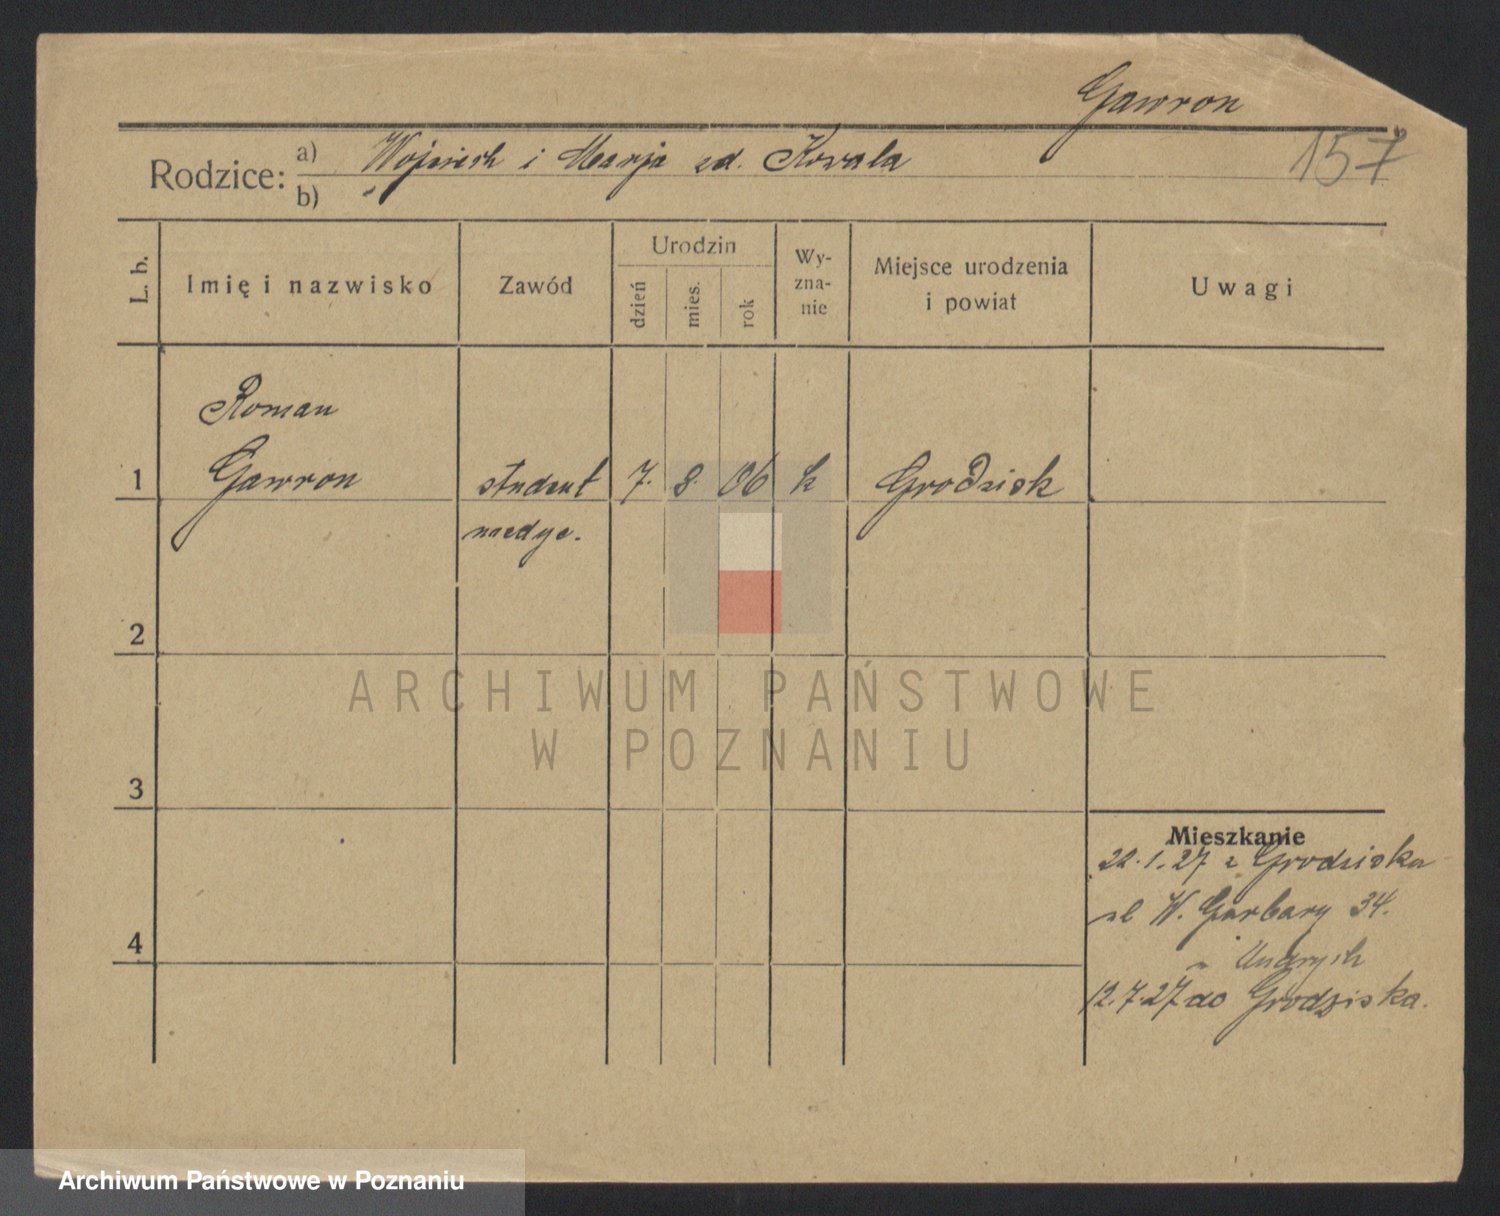 Gawron
157
Rodzice:
a) Wojciech i Marja zd. Kowala
b)
L. b.
Imię i nazwisko
Zawód
Urodzin
dzień
mies.
rok
Wy-
zna-
nie
Miejsce urodzenia
i powiat
Uwagi
Roman
1 Gawron student 7. 8. 06 k Grodzisk
medyc.
2
ARCHIWUM PAŃSTWOWE
W POZNANIU
3
Mieszkanie
22.1.27 z Grodziska
ul W. Garbary 34.
4
12.7.27 do Grodziska.
Archiwum Państwowe w Poznaniu